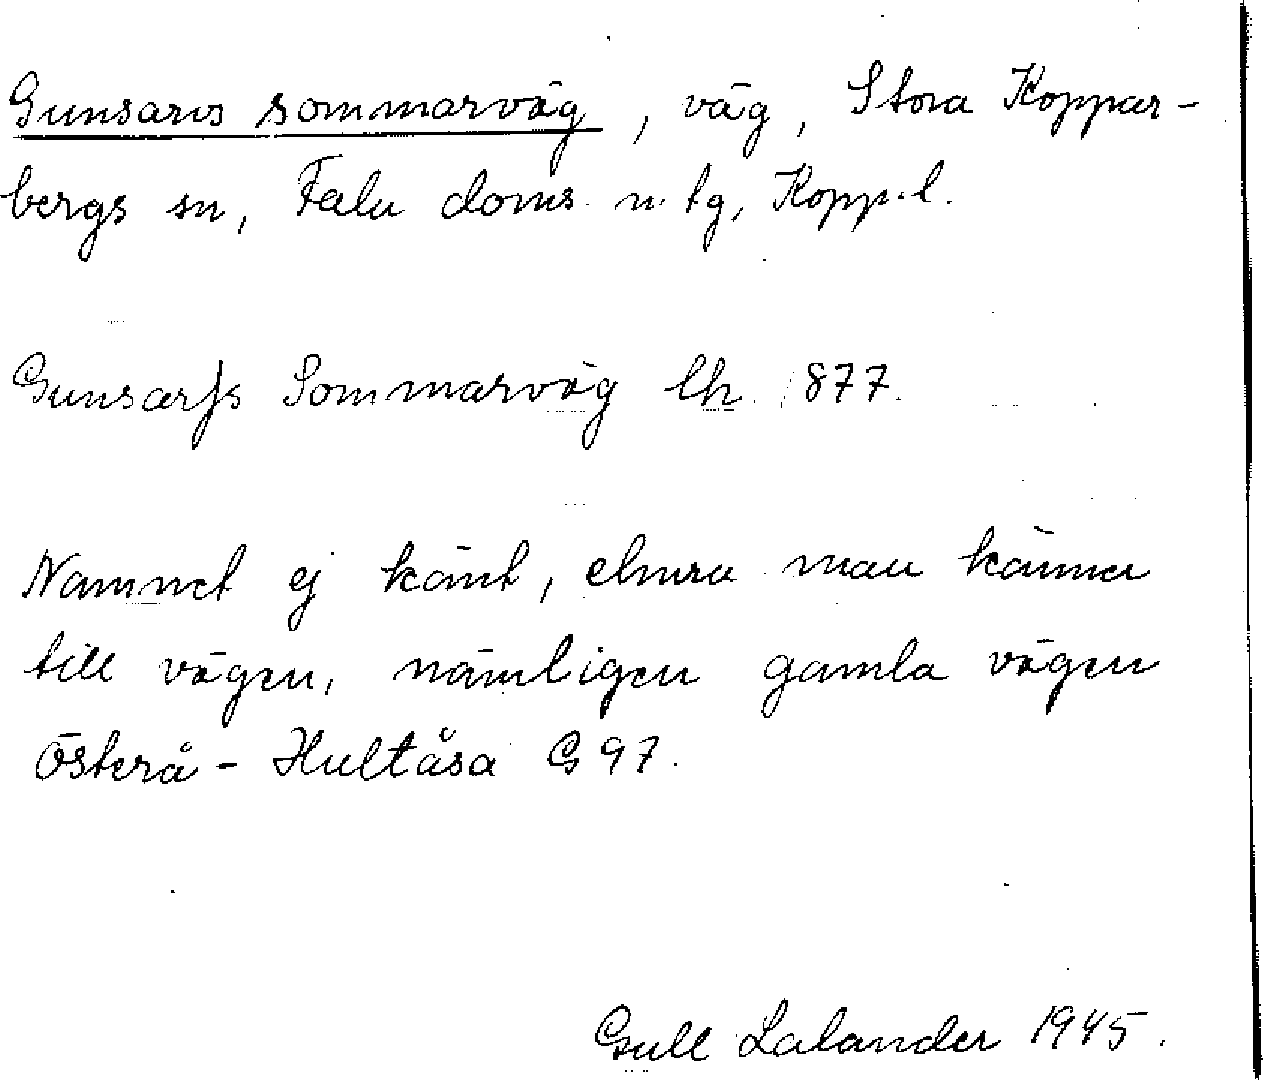 Gunsarvs sommarväg, väg, Stora Koppar-
bergs sn, Falu doms. n. tg, Kopp. l.
Gunsarfs Sommarväg lh 1877.
Namnet ej känt, ehuru man känner
till vägen, nämligen gamla vägen
Österå - Hultåsa G 97.
Gull Lalander 1945.